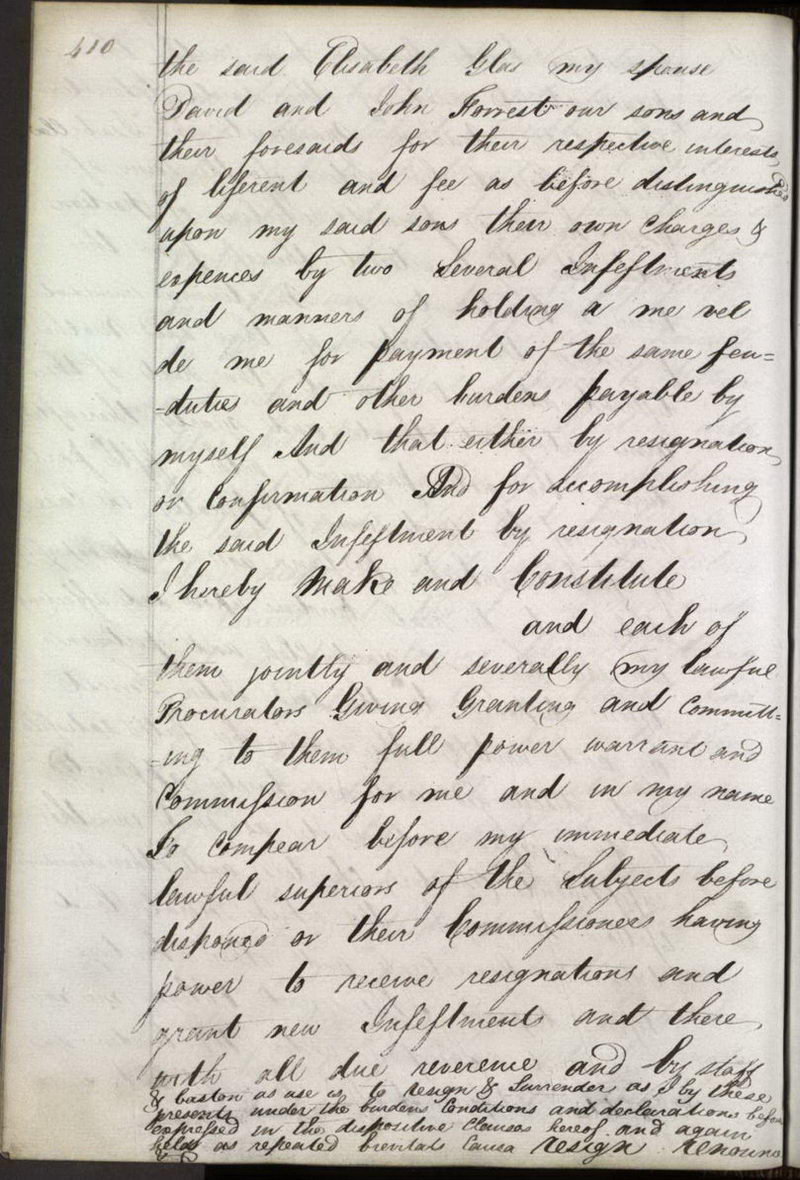 410
the said Elisabeth Glas my spouse
David and John Forrest our sons and
their foresaids for their respective interests
of liferent and fee as before distinguished
upon my said sons their own Charges &
expences by two Several Infeftments
and manners of holding a me vel
de me for payment of the same feu=
-duties and other burdens payable by
myself And that either by resignation
or Confirmation And for accomplishing
the said Infeftment by resignation
I hereby Make and Constitute
and each of
them jointly and severally my lawful
Procurators Giving Granting and Committ=
-ing to them full power warrant and
Commission for me and in my name
To Compear before my immediate
lawful superiors of the Subjects before
disponed or their Commissioners having
power to receive resignations and
grant new Infeftments and there
with all due reverence and by staff
& baston as use is to Resign & Surrender as I by these
presents under the burdens Conditions and declarations before
expressed in the dispositive Clauses hereof and again
held as repeated brevitatis Causa Resign Renounce